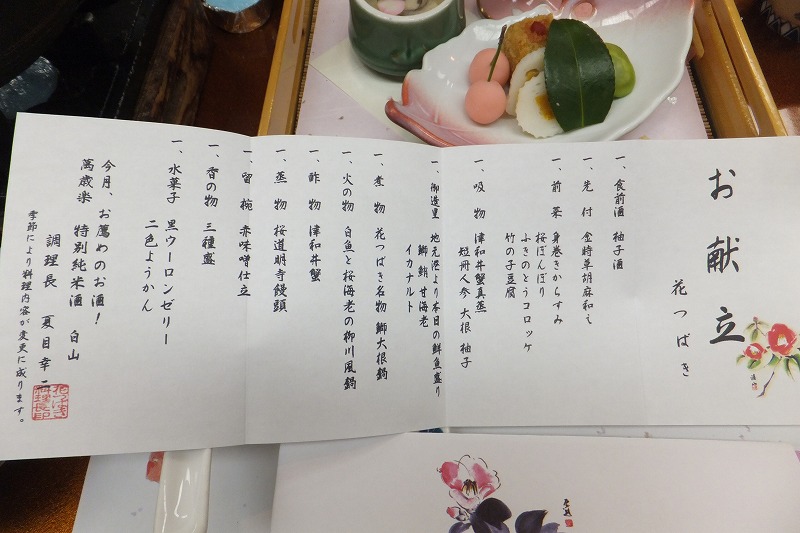 お献立
花つばき
一、食前酒 柚子酒
一、先付 金時草胡麻和え
一、前菜 身巻きからすみ
桜ぼんぼり
ふきのとうコロッケ
竹の子豆腐
一、吸物 津和井蟹真蒸
短冊人参 大根 柚子
一、御造里 地元港より本日の鮮魚盛り
鰤 鮪 甘海老
イカナルト
一、煮物 花つばき名物 鰤大根鍋
一、火の物 白魚と桜海老の柳川風鍋
一、酢物 津和井蟹
一、蒸物 桜道明寺饅頭
一、留椀 赤味噌仕立
一、香の物 三種盛
一、水菓子 黒ウーロンゼリー
二色ようかん
今月、お薦めのお酒!
萬歳楽 特別純米酒 白山
調理長 夏目幸
季節により料理内容が変更に成ります。